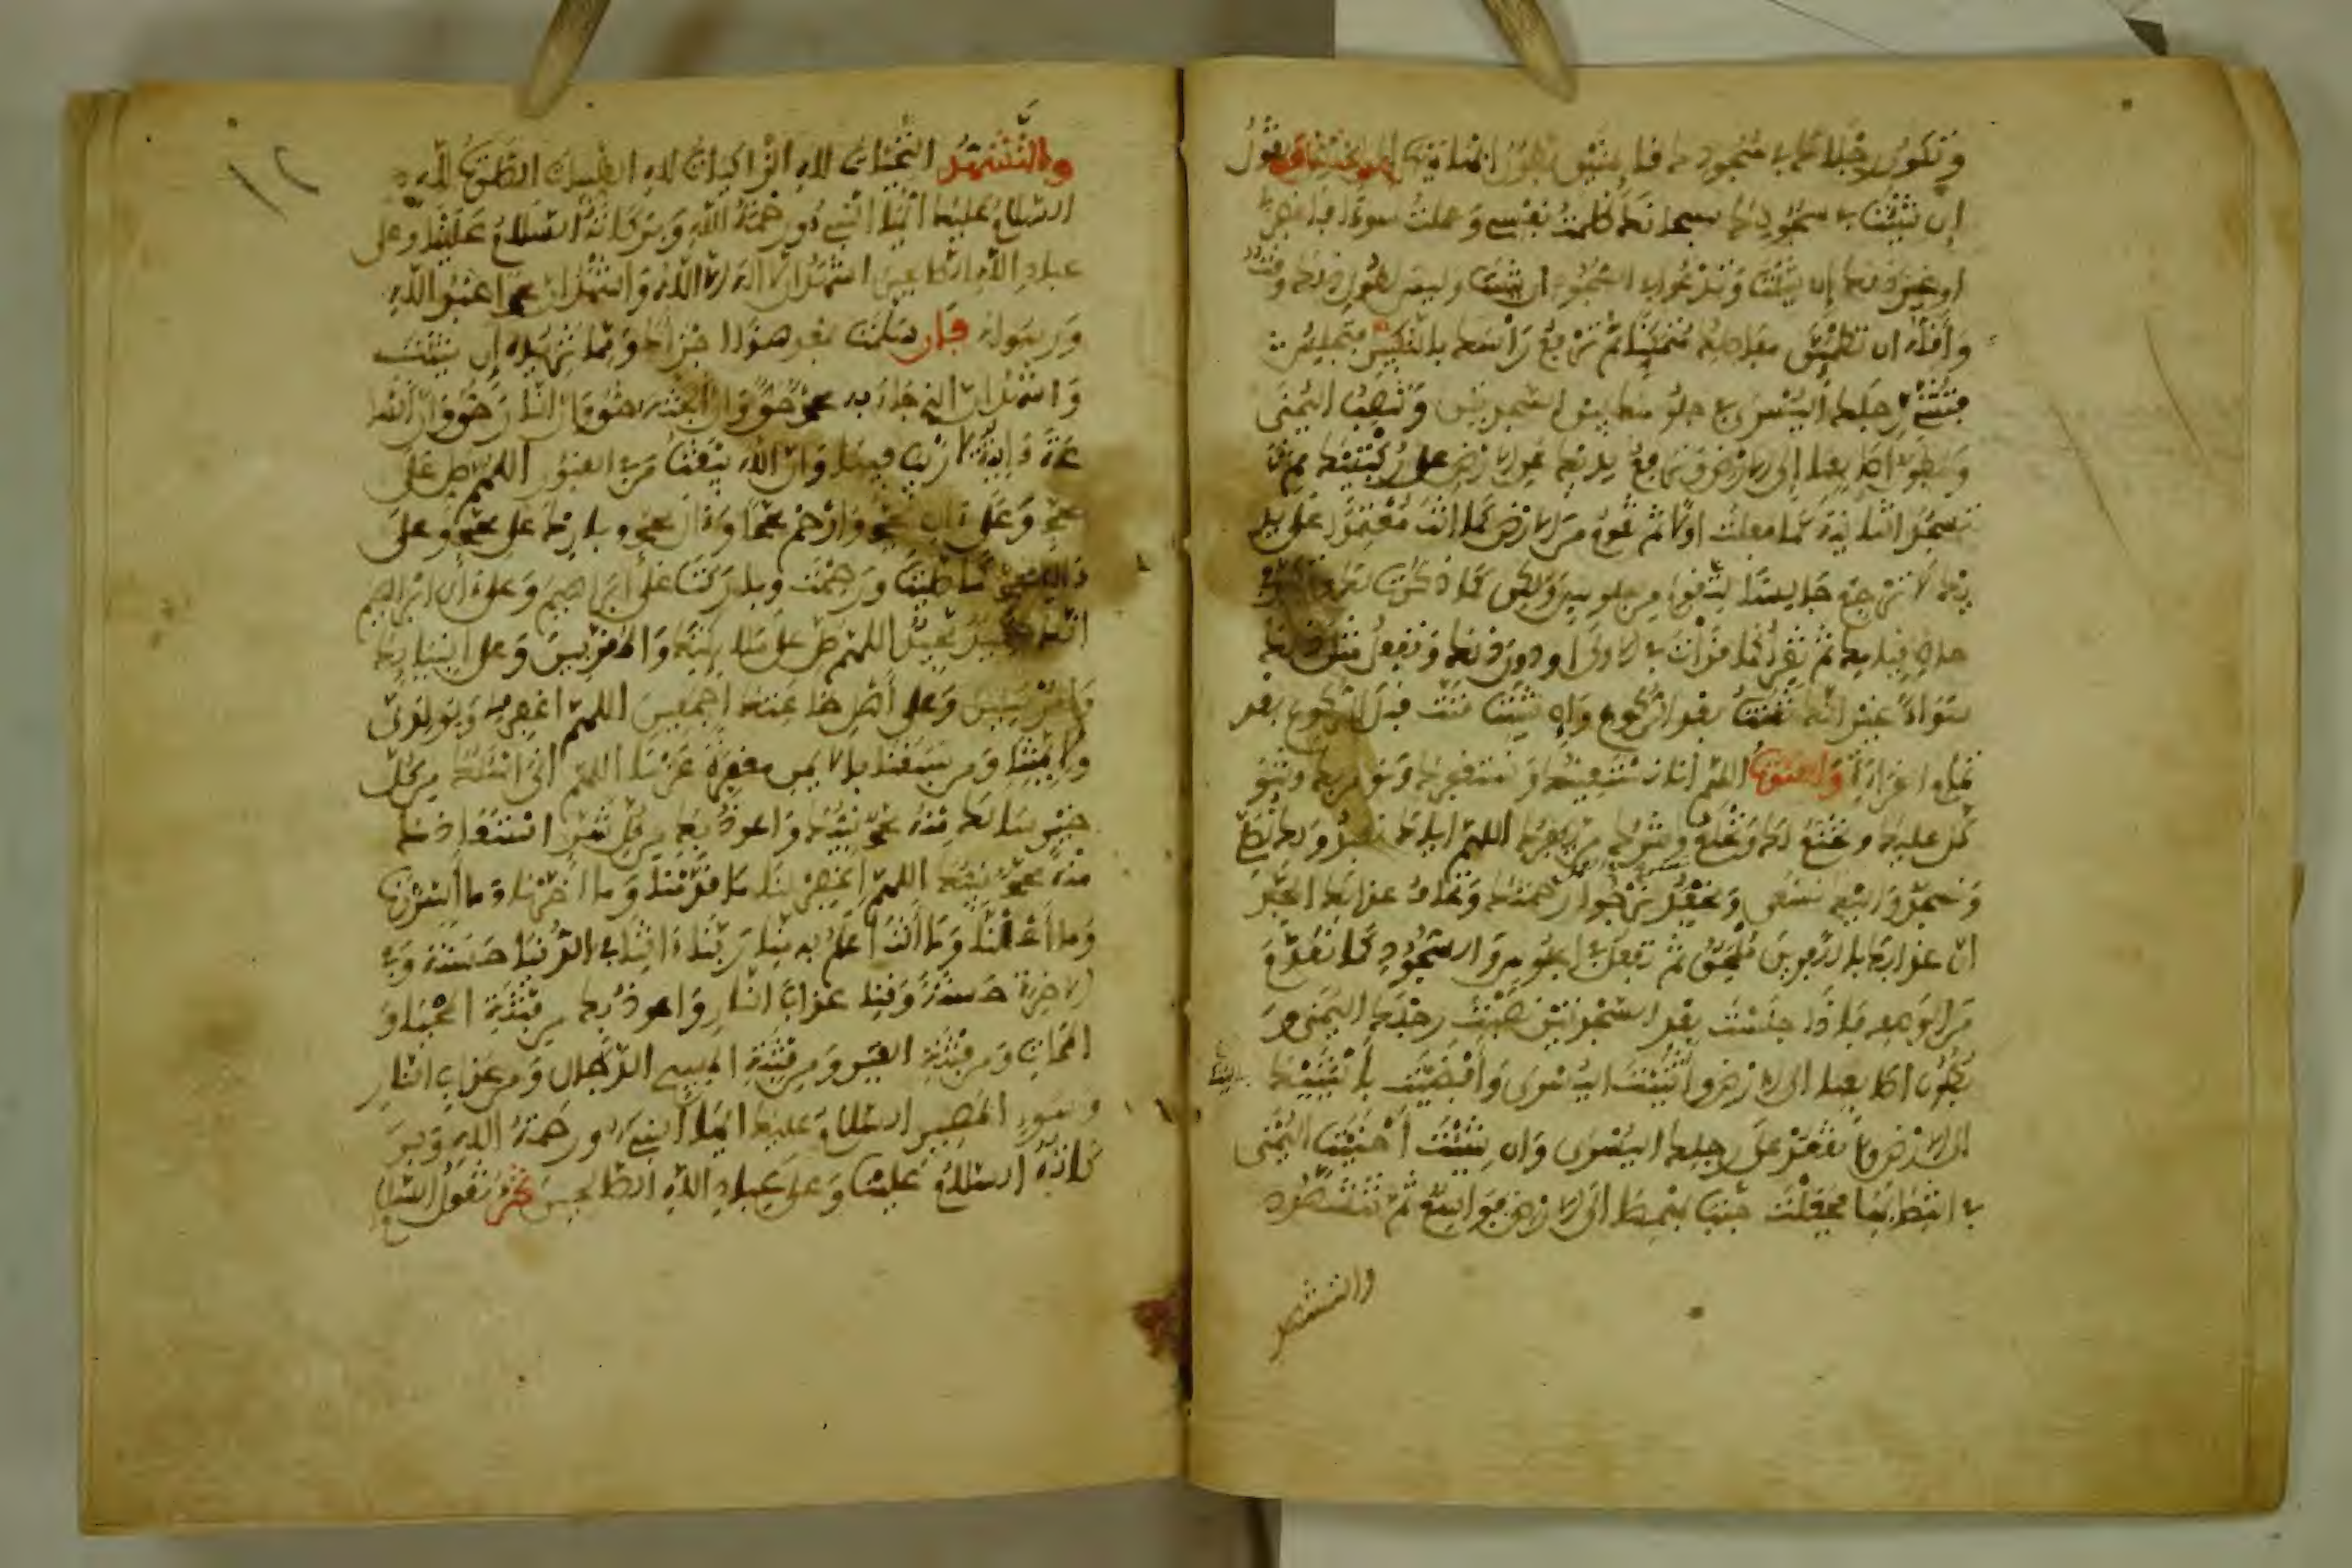 وتكون رجلاك في سجودك قائمتين بطون ابهاميهما الى الارض وتقول
ان شئت في سجودك سبحانك ظلمت نفسي وعملت سوءا فاغفر لي
او غير ذلك ان شئت وتدعوا في السجود ان شئت وليس لطول ذلك وقت
واقله ان تطمئن مفاصلك متمكنا ثم ترفع راسك بالتكبير فتجلس
فتثني رجلك اليسرى في جلوسك بين السجدتين وتنصب اليمنى
وبطون اصابعها الى الارض وترفع يديك عن الارض على ركبتيك ثم
تسجد الثانية كما فعلت اولا ثم تقوم من الارض كما انت معتمدا على يد
يك لا ترجع جالسا لتقوم من جلوس ولكن كما ذكرت لك وتكبر في
حال قيامك ثم تقرا كما قرات في الاولى او دون ذلك وتفعل مثل ذلك
سواء غير انك تقنت بعد الركوع وان شئت قنت قبل الركوع بعد
تمام القراءة والقنوت اللهم انا نستعينك ونستغفرك ونومن بك ونتو
كل عليك ونخنع لك ونخلع ونترك من يكفرك اللهم اياك نعبد ولك نصلي
ونسجد واليك نسعى ونحفد نرجوا رحمتك ونخاف عذابك الجد
ان عذابك بالكافرين ملحق ثم تفعل في الجلوس والسجود كما تقدم
من الوصف فاذا جلست بعد السجدتين نصبت رجلك اليمنى و
بطون اصابعها الى الارض وثنيت اليسرى وافضيت باليتك
الى الارض ولا تقعد على رجلك اليسرى وان شئت احنيت اليمنى
في انتصابها فجعلت جنب بهمها الى الارض فواسع ثم تتشهد
والتشهد
والتشهد التحيات لله الزاكيات لله الطيبات الصلوات لله
السلام عليك ايها النبيء ورحمة الله وبركاته السلام علينا وعلى
عباد الله الصالحين اشهد ان لا اله الا الله واشهد ان محمدا عبد الله
ورسوله فان سلمت بعد هذا اجزاك ومما تزيده ان شئت
واشهد ان الذي جاء به محمد حق وان الجنة حق وان النار حق وان الساعة
ءاتية لا ريب فيها وان الله يبعث من في القبور اللهم صل على
محمد وعلى ءال محمد وارحم محمدا وءال محمد وبارك على محمد وعلى
ءال محمد كما صليت ورحمت وباركت على ابراهيم وعلى ءال ابراهيم
انك حميد مجيد اللهم صل على ملائكتك والمقربين وعلى انبيائك
والمرسلين وعلى اهل طاعتك اجمعين اللهم اغفر لي ولوالدي
ولائمتنا ومن سبقنا بالايمن مغفرة عزما اللهم اني اسئلك من كل
خير سالك منه محمد نبيك واعوذ بك من كل شر استعاذك
منه محمد نبيك اللهم اغفر لنا ما قدمنا وما اخرنا وما اسررنا
وما اعلنا وما انت اعلم به منا ربنا ءاتنا في الدنيا حسنة وفي
الاخرة حسنة وقنا عذاب النار واعوذ بك من فتنة المحيا و
الممات ومن فتنة القبر ومن فتنة المسيح الدجال ومن عذاب النار
وسوء المصير السلام عليك ايها النبيء ورحمة الله وبر
كاته السلام علينا وعلى عباد الله الصالحين ثم تقول السلا
١٢